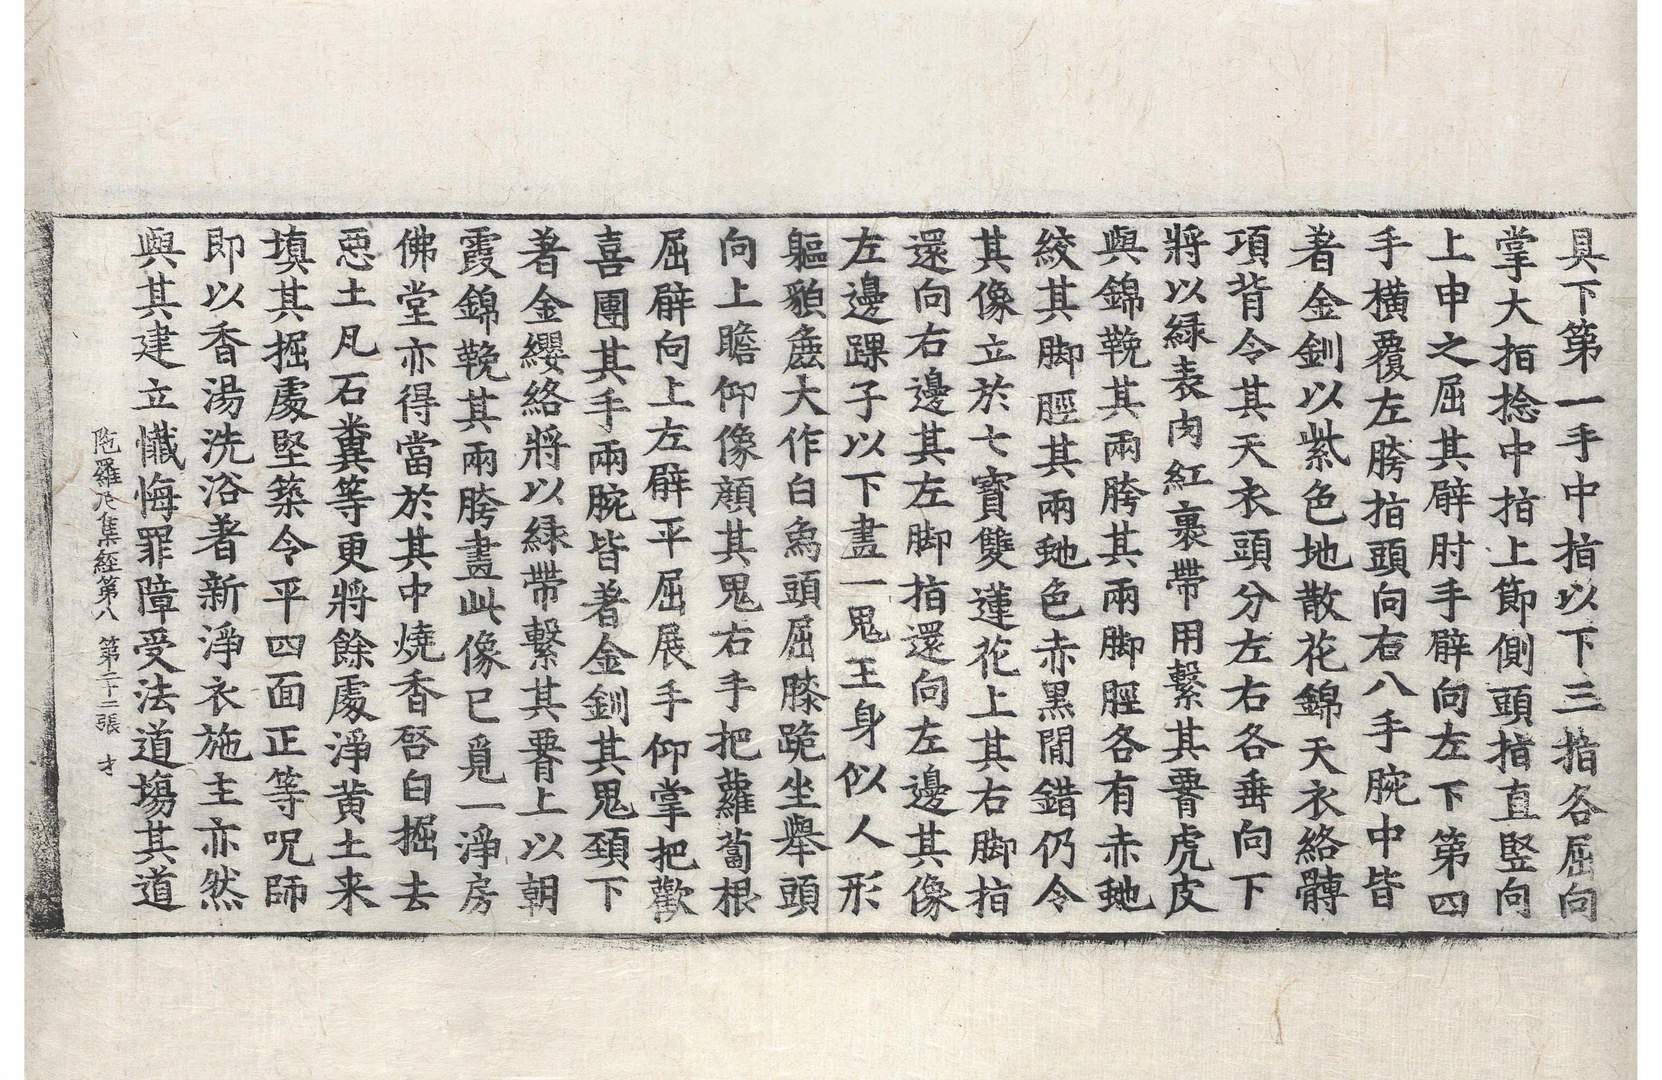 具下第一手中指以下三指各屈向
掌大指捻中指上節側頭指直竪向
上申之屈其臂肘手臂向左下第四
手横覆左胯指頭向右八手腕中皆
著金釧以紫色地散花錦天衣絡髆
項背令其天衣頭分左右各垂向下
將以緑表肉紅裹帶用繫其𦝫虎皮
與錦鞔其兩胯其兩脚脛各有赤虵
絞其脚脛其兩虵色赤黑閒錯仍令
其像立於七寶雙蓮花上其右脚指
還向右邊其左脚指還向左邊其像
左邊踝子以下畫一鬼王身似人形
軀貌麁大作白烏頭屈膝跪坐舉頭
向上瞻仰像顔其鬼右手把蘿蔔根
屈臂向上左臂平屈展手仰掌把歡
喜團其手兩腕皆著金釧其鬼頚下
著金纓絡將以緑帶繫其𦝫上以朝
霞錦鞔其兩胯畫此像已覓一淨房
佛堂亦得當於其中燒香啓白掘去
惡土凡石糞等更將餘處淨黄土来
填其掘處堅築令平四面正等呪師
即以香湯洗浴著新淨衣施主亦然
與其建立懺悔罪障受法道塲其道
陁羅尼集經第八 第二十二張 才